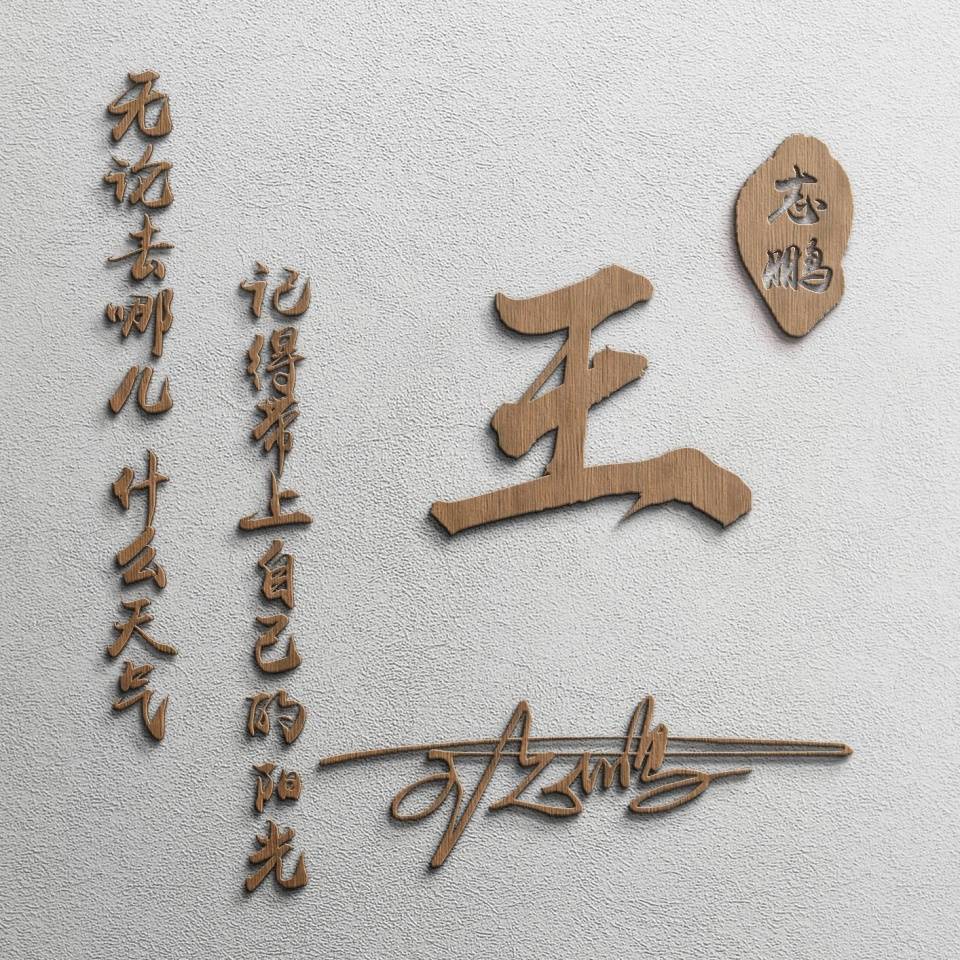 无论去哪儿 什么天气
记得带上自己的阳光
王
志鹏